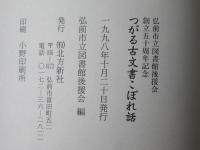 弘前市立図書館後援会
創立五十周年記念
つがる古文書こぼれ話
一九九八年十月二十日発行
弘前市立図書館後援会 編
発行 ㈲北方新社
弘前市富田町五二
電話 〇一七二-三六-二八二一
印刷 小野印刷所